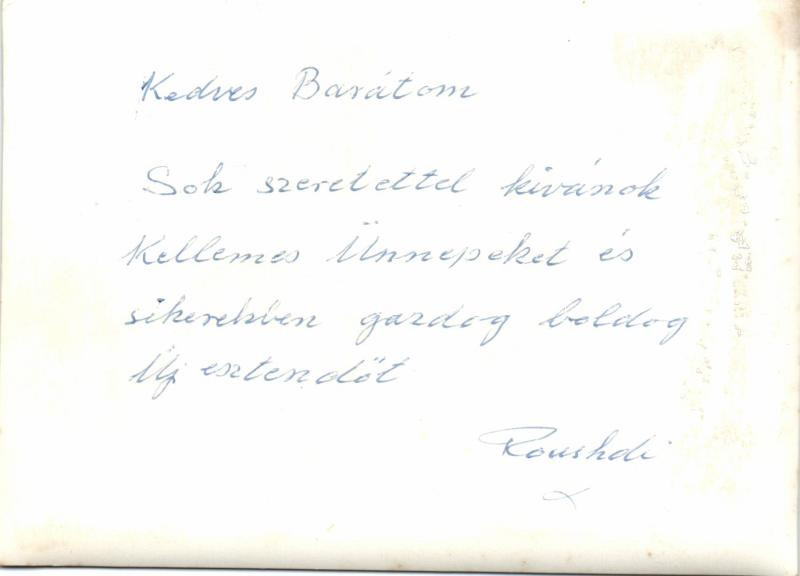 Kedves Barátom
Sok szeretettel kivánok
Kellemes Ünnepeket és
sikerekben gazdog boldog
Új esztendőt
Roushdi